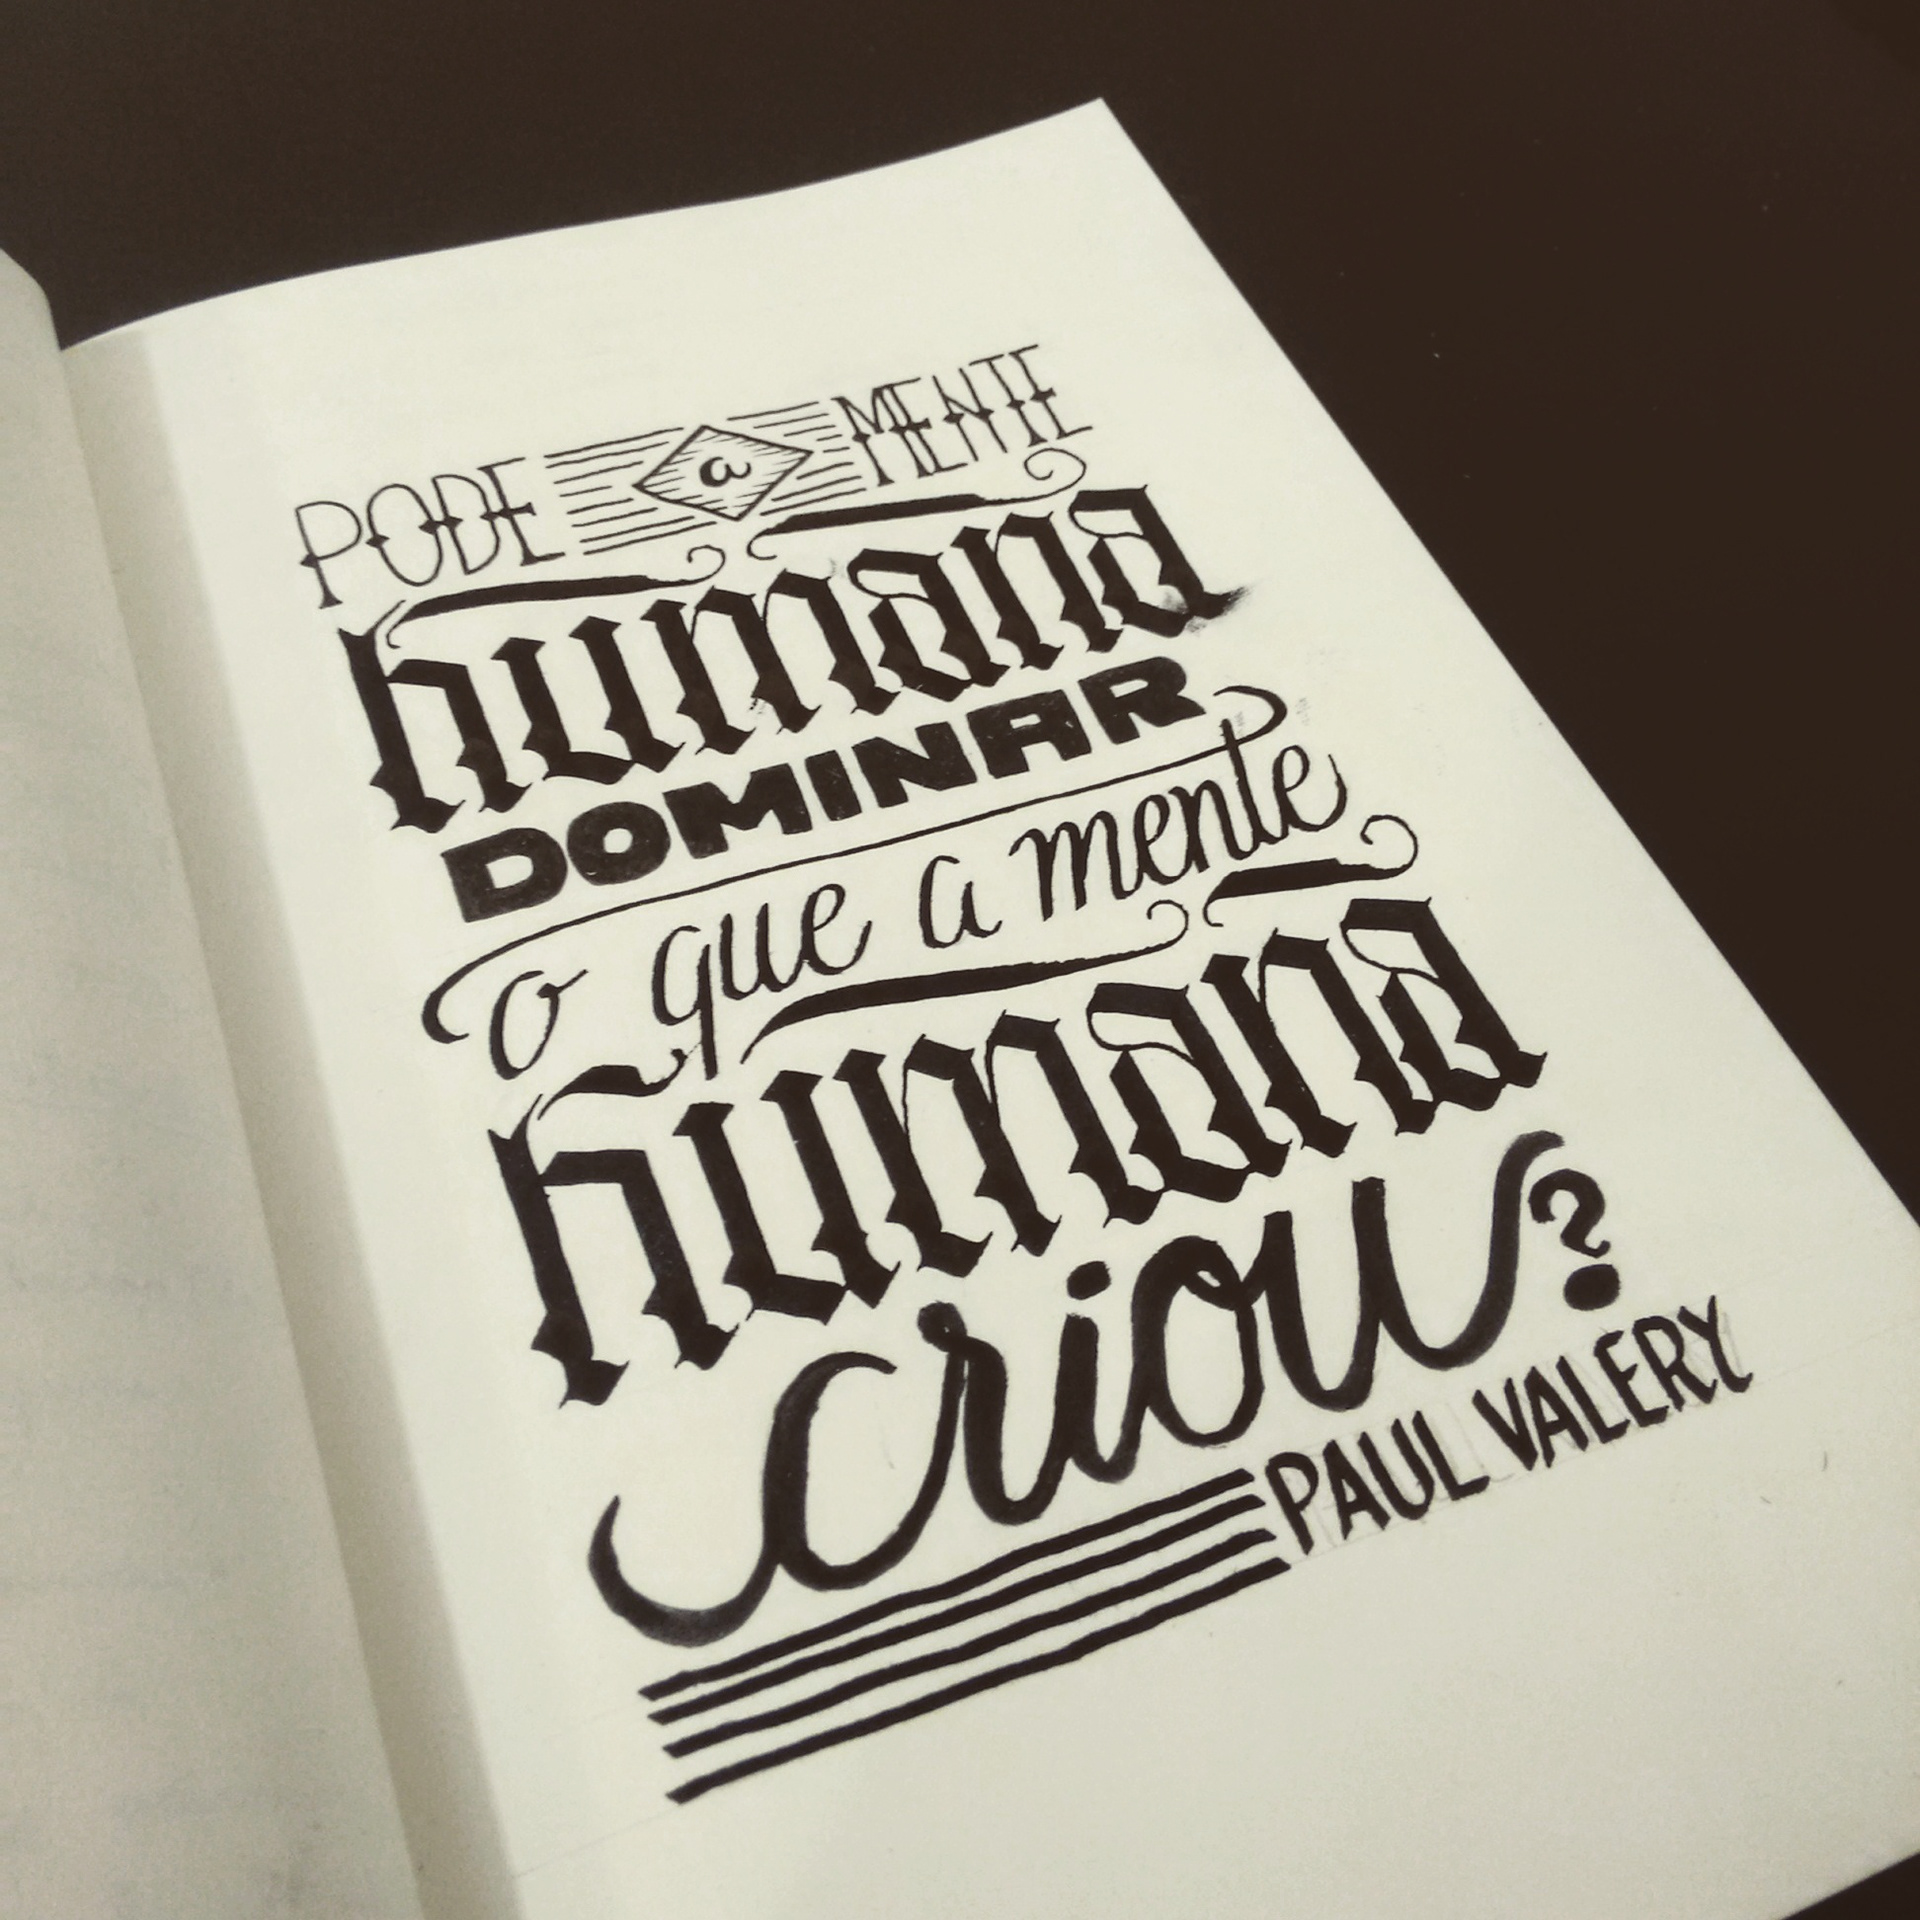 PODE a MENTE
humana
DOMINAR
o que a mente
humana
criou?
PAUL VALERY